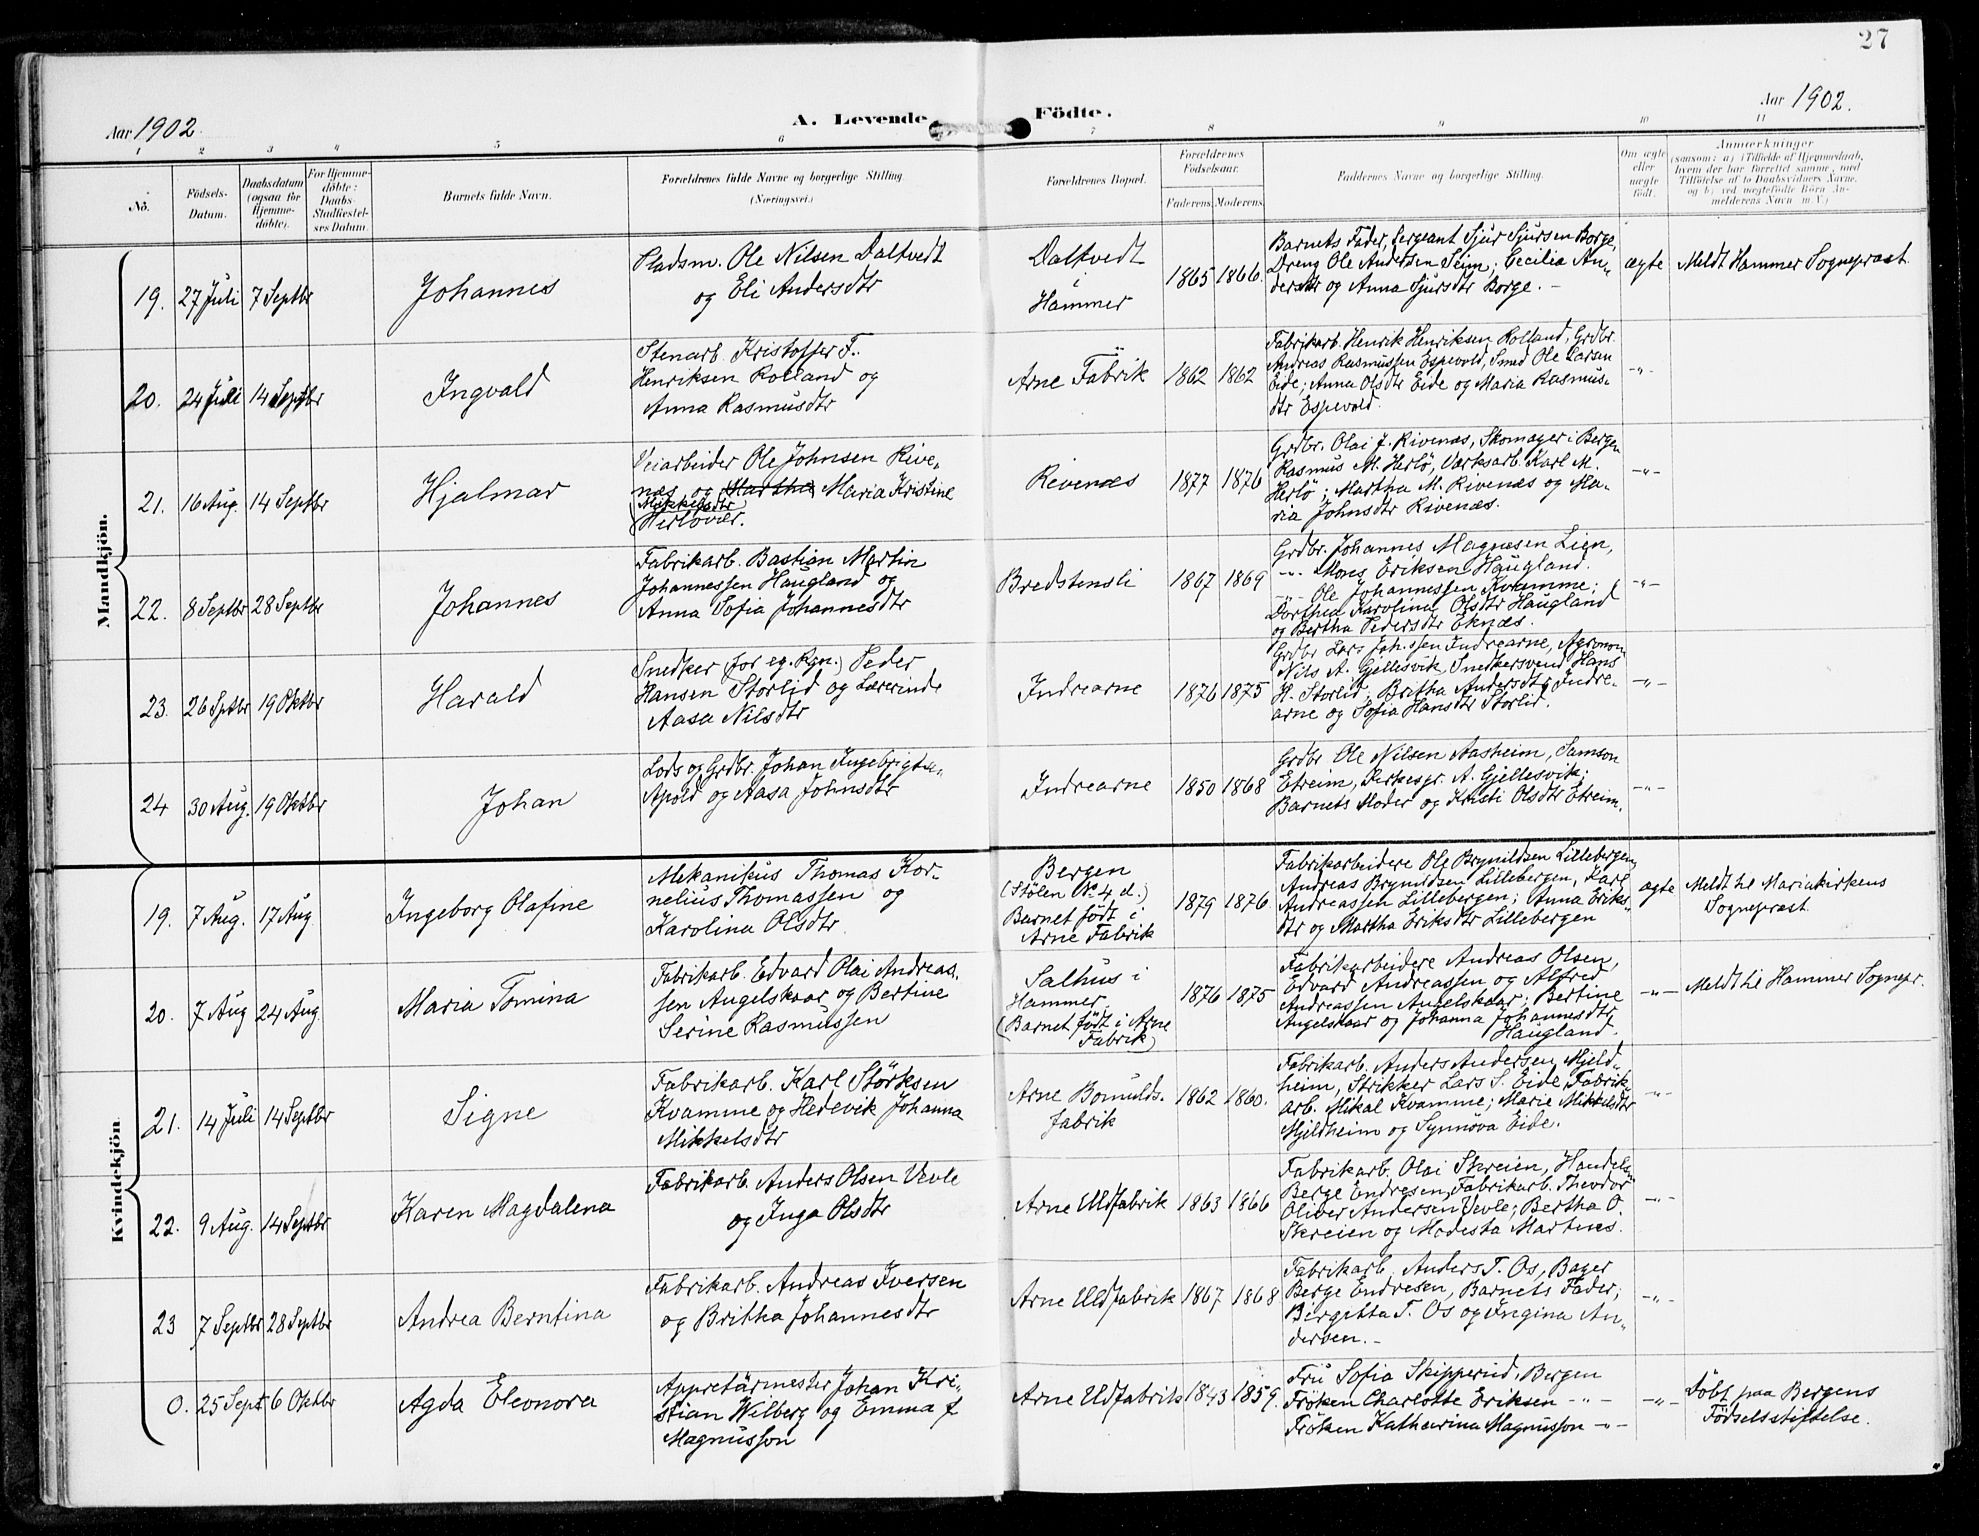 27
Aar 1902.
A. Levende Födte.
Aar 1902.
1 2 3 4 5 6 7 8 9 10 11
No.
Födsels-
Datum.
Daabsdatum
(ogsaa for
Hjemme-
döbte).
For Hjemme-
döbte:
Daabs-
Stadfæstel-
ses Datum.
Barnets fulde Navn.
Forældrenes fulde Navne og borgerlige Stilling
(Næringsvei.)
Forældrenes Bopæl.
Forældrenes
Födselsaar.
Faderens. Moderens.
Faddernes Navne og borgerlige Stilling.
Om ægte
eller
uægte
födt.
Anmærkninger
(saasom: a) i Tilfælde af Hjemmedaab,
hvem der har forrettet samme, med
Tilföielse af to Daabsvidners Navne,
og b) ved uægtefödte Börn An-
melderens Navn m. V.)
Mandkjön.
19. 27 Juli 7 Septbr
Johannes
Pladsm. Ole Nilsen Daltvedt
og Eli Andersdtr
Daltvedt
i
Hammer
1865 1866.
Barnets Fader, Sergeant Sjur Sjursen Borge,
Dreng Ole Andersen Seim; Cecilia An-
dersdtr og Anna Sjursdtr Borge. -
ægte
Meldt Hammer Sogneprest
20. 24 Juli 14 Septbr
Ingvald
Stenarb. Kristoffer F.
Henriksen Rolland og
Anna Rasmusdtr
Arne Fabrik
1862 1862
Fabrikarb. Henrik Henriksen Rolland, Grdbr.
Andreas Rasmussen Espevold, Smed Ole Larsen
Eide; Anna Olsdtr Eide og Maria Rasmus-
dtr Espevold.
-"-
21. 16 Aug. 14 Septbr
Hjalmar
Veiarbeider Ole Johnsen Rive-
næs og Martha Maria Kristine
Mikkelsdtr
Herlövær.
Rivenæs
1877 1876
Grdbr. Olai J. Rivenæs, Skomager i Bergen
Rasmus M. Herlö, Værksarb. Karl M.
Herlö; Martha M. Rivenæs og Ma-
ria Johnsdtr Rivenæs.
-"-
22. 8 Septbr 28 Septbr
Johannes
Fabrikarb. Bastian Martin
Johannessen Haugland og
Anna Sofia Johannesdtr
Bredstensli
1867 1869
Grdbr. Johannes Magnesen Lien,
-"- Mons Eriksen Haugland.
-"- Ole Johannessen Kvamme;
Dorthea Karolina Olsdtr Haugland
og Bertha Pedersdtr Eknæs.
-"-
23. 26 Sptbr 19 Oktbr
Harald
Snedker (for eg. Rgn.) Peder
Hansen Storlid og Lærerinde
Aasa Nilsdtr
Indrearne
1876 1875
Grdbr Lars Joh.ssen Indrearne, Agronom
Nils A. Gjellesvik, Snedkersvend Hans
H. Storlid; Britha Andersdtr Indre-
arne og Sofia Hansdtr Storlid.
-"-
24 30 Aug. 19 Oktbr
Johan
Lods og Grdbr. Johan Ingebrigts.
Apold og Aasa Johnsdtr
Indrearne
1850 1868
Grdbr Ole Nilsen Aasheim, Samson
Etreim, Kirkesgr. A. Gjellesvik;
Barnets Moder og Kristi Olsdtr Etreim.
-"-
Kvindekjön.
19. 7 Aug. 17 Aug
Ingeborg Olafine
Mekanikus Thomas Kor-
nelius Thomassen og
Karolina Olsdtr.
Bergen
(Stölen No 4 d.)
Barnet födt i
Arne Fabrik
1879 1876.
Fabrikarbeidere Ole Brynildsen Lillebergen,
Andreas Brynildsen Lillebergen, Karl
Andreassen Lillebergen; Anna Eriks-
dtr og Martha Eriksdtr Lillebergen
ægte
Meldt til Mariakirkens
Sogneprest.
20. 7 Aug 24 Aug.
Maria Tomina
Fabrikarb. Edvard Olai Andreas-
sen Angelskaar og Bertine
Serine Rasmussen
Salhus i
Hammer.
(Barnet födt i Arne
Fabrik)
1876 1875
Fabrikarbeidere Andreas Olsen,
Edvard Andreassen og Alfred
Andreassen Angelskaar; Bertine
Angelskaar og Johanna Johannesdtr
Haugland.
-"-
Meldt til Hammer Sognepr.
21. 14 Juli 14 Septbr
Signe
Fabrikarb. Karl Störksen
Kvamme og Hedevik Johanna
Mikkelsdtr
Arne Bomulds-
fabrik
1862 1860.
Fabrikarb. Anders Andersen Mjeld-
heim, Strikker Lars S. Eide, Fabrik-
arb. Mikal Kvamme; Marie Mikkelsdtr
Mjeldheim og Synnöva Eide.
-"-
22. 9 Aug. 14 Septbr
Karen Magdalena
Fabrikarb. Anders Olsen Vevle
og Inga Olsdtr
Arne Uldfabrik
1863 1866
Fabrikarb. Olai Skreien, Handelsm
Berge Endresen, Fabrikarb. Theodor
Oliver Andersen Vevle; Bertha O.
Skreien og Modesta Martnes.
-"-
23 7 Septbr 28 Septbr
Andrea Berntina
Fabrikarb. Andreas Iversen
og Britha Johannesdtr
Arne Uldfabrik
1867 1868
Fabrikarb. Anders T. Os, Bager
Berge Endresen, Barnets Fader;
Birgitta T. Os og Ingina An-
dersen. -
-"-
0. 25 Sept 6 Oktbr
Agda Eleonora
Appretärmester Johan Kri-
stian Wilberg og Emma f.
Magnusson
Arne Uldfabrik
1843 1859.
Fru Sofia Skipperud, Bergen
Fröken Charlotte Eriksen -"-
Fröken Katharina Magnusson -"-
-"-
Döbt paa Bergens
Födselsstiftelse.